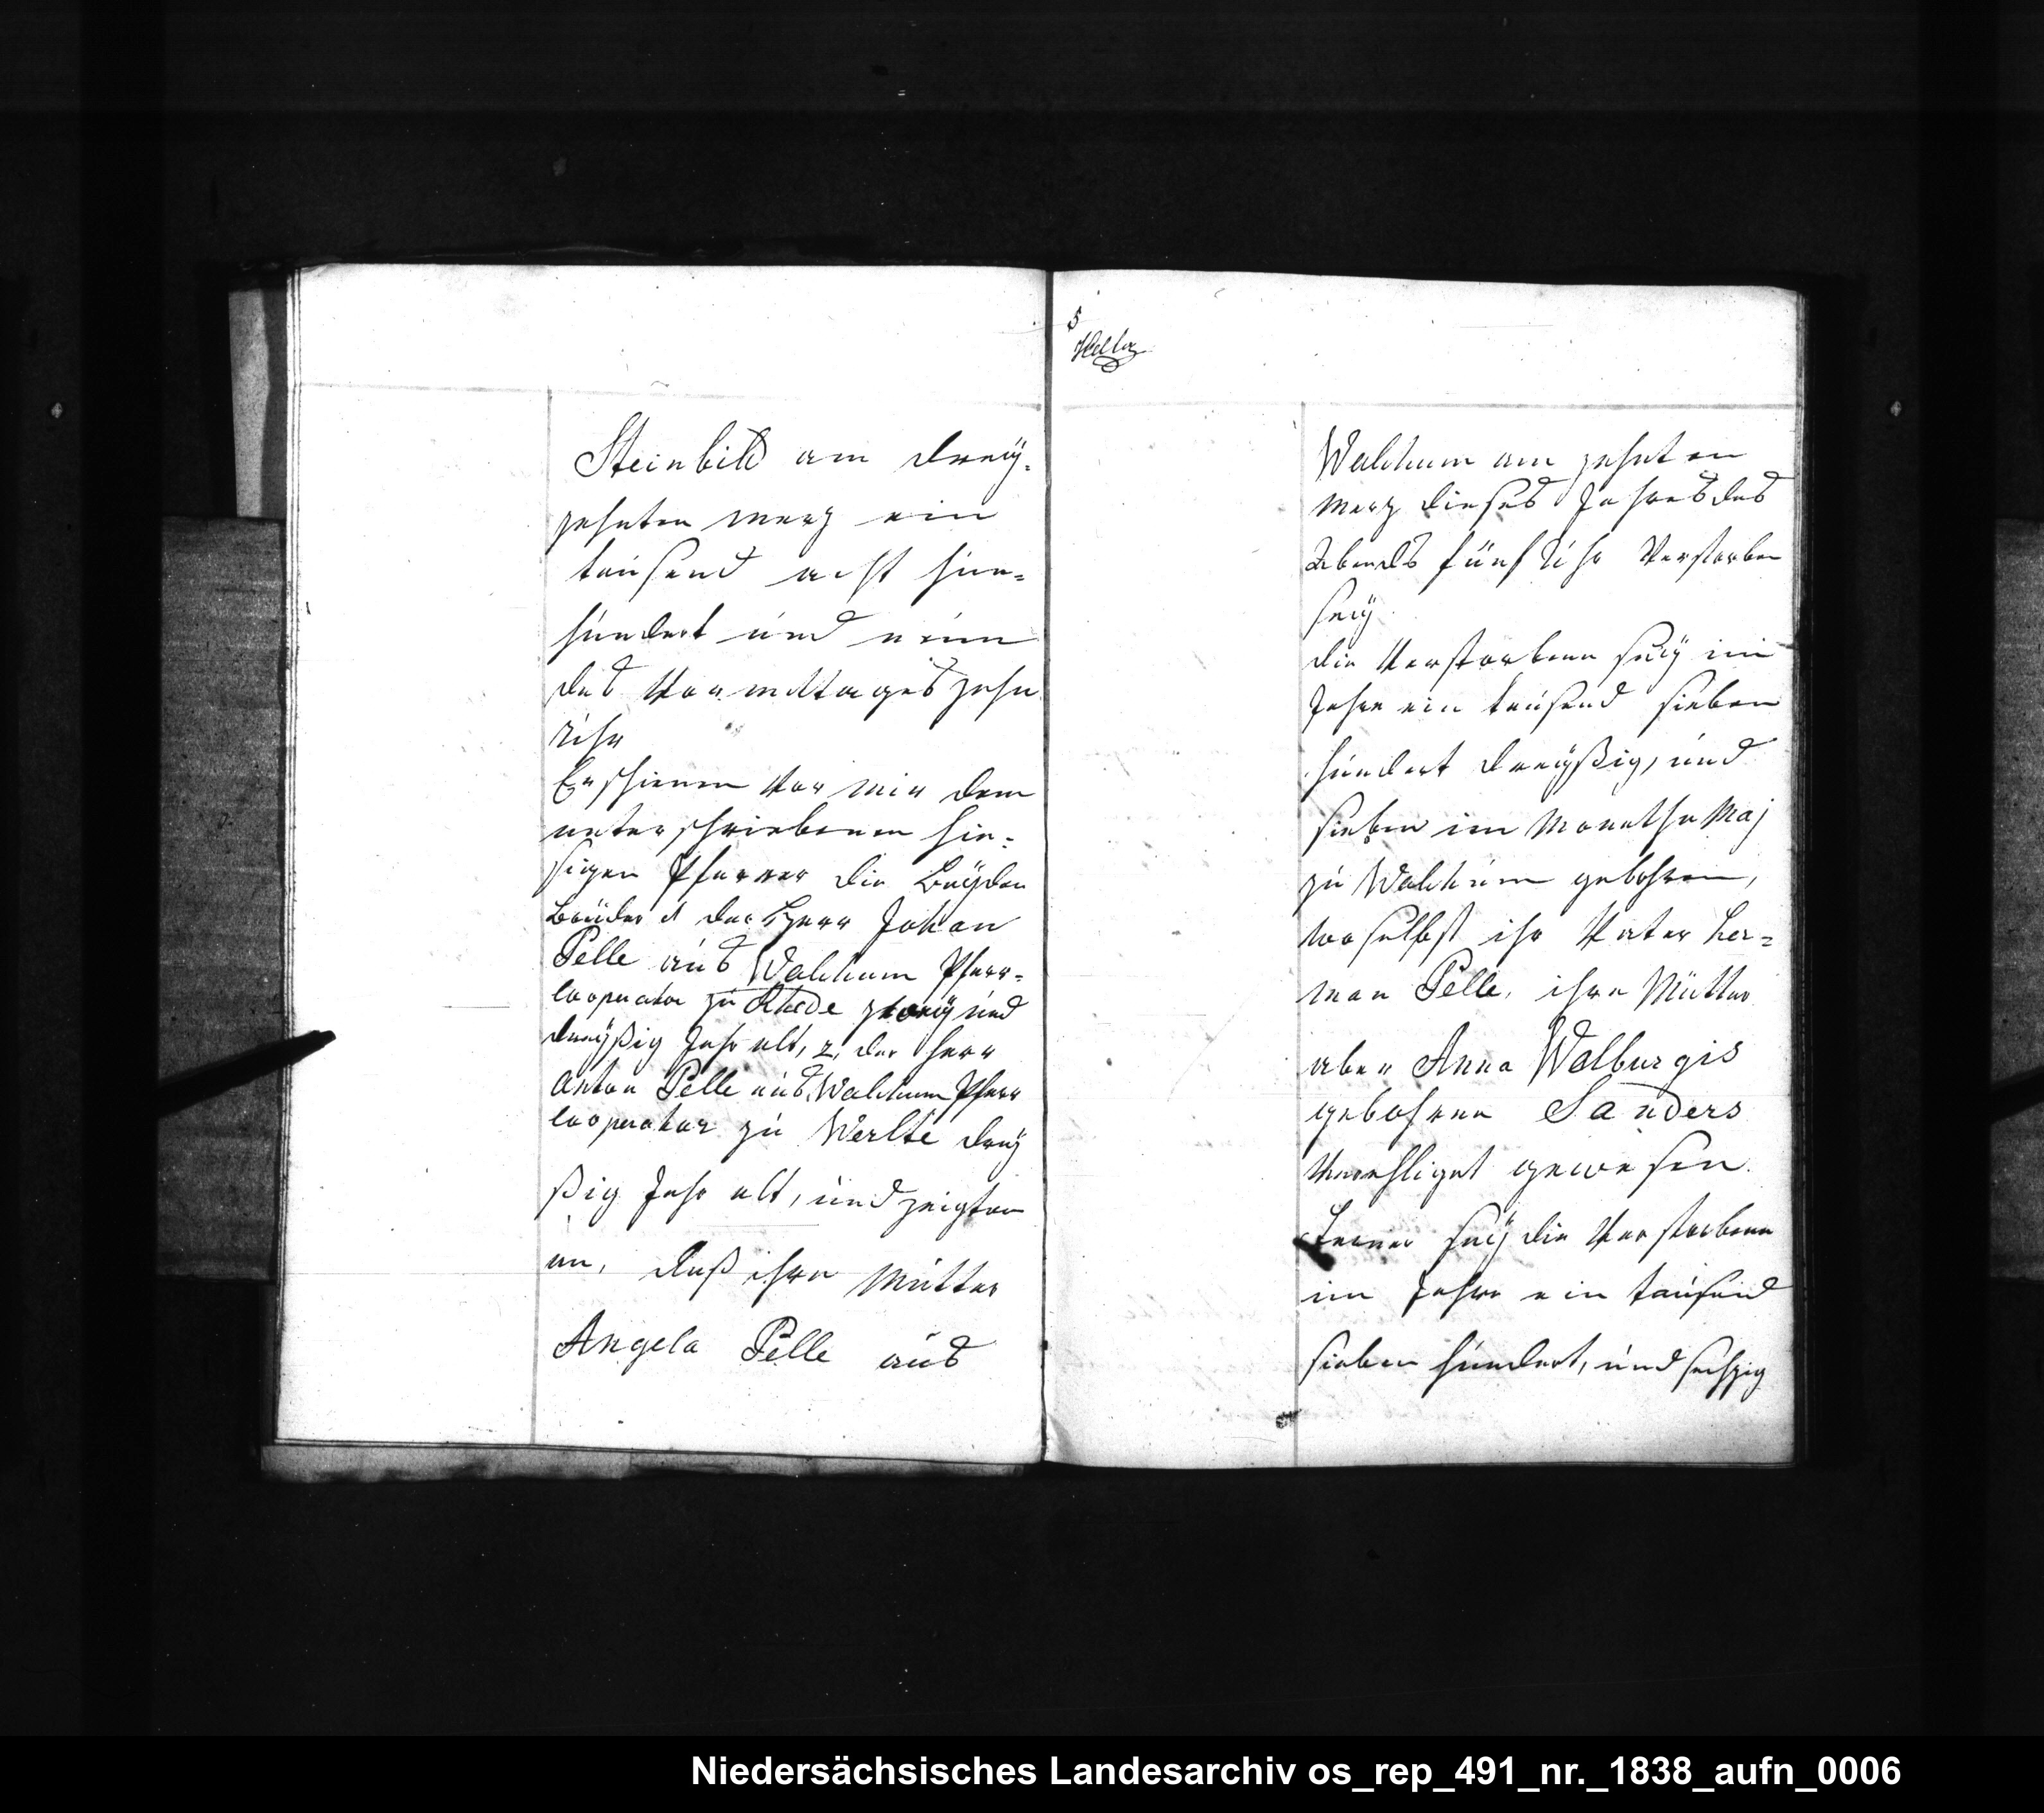 Steinbild am drey-
zehnten merz ein
tausend acht hun-
hundert und neun
des Vormittages zehn
Uhr
Erschienen Vor mir dem
unterschriebenen hie-
sigen Pfarrer die beyden
Brüder der Herr Johan
Pelle aus Walchum Pfarr-
Cooperator zu Rhede zwey und
dreyßig Jahr alt, 2, der Herr
Anton Pelle aus Walchum Pfarr
Cooperator zu Werlte drey
ßig Jahr alt, und zeigten
an, daß ihre Mutter
Angela Pelle aus
5
Walchum am zehnten
merz dieses Jahres des
Abends fünf Uhr Verstorben
sey
die Verstorbene sey im
Jahre ein tausend sieben
hundert dreyßig, und
sieben im Monathe Maj
zu Walchum gebohren,
woselbst ihr Vater Her-
man Pelle, ihre Mutter
aber Anna Walburgis
gebohrene Sanders
Verehliget gewesen.
Ferner sey die Verstorbene
im Jahre ein tausend
sieben hundert, und sechzig
Niedersächsisches Landesarchiv os_rep_491_nr._1838_aufn_0006